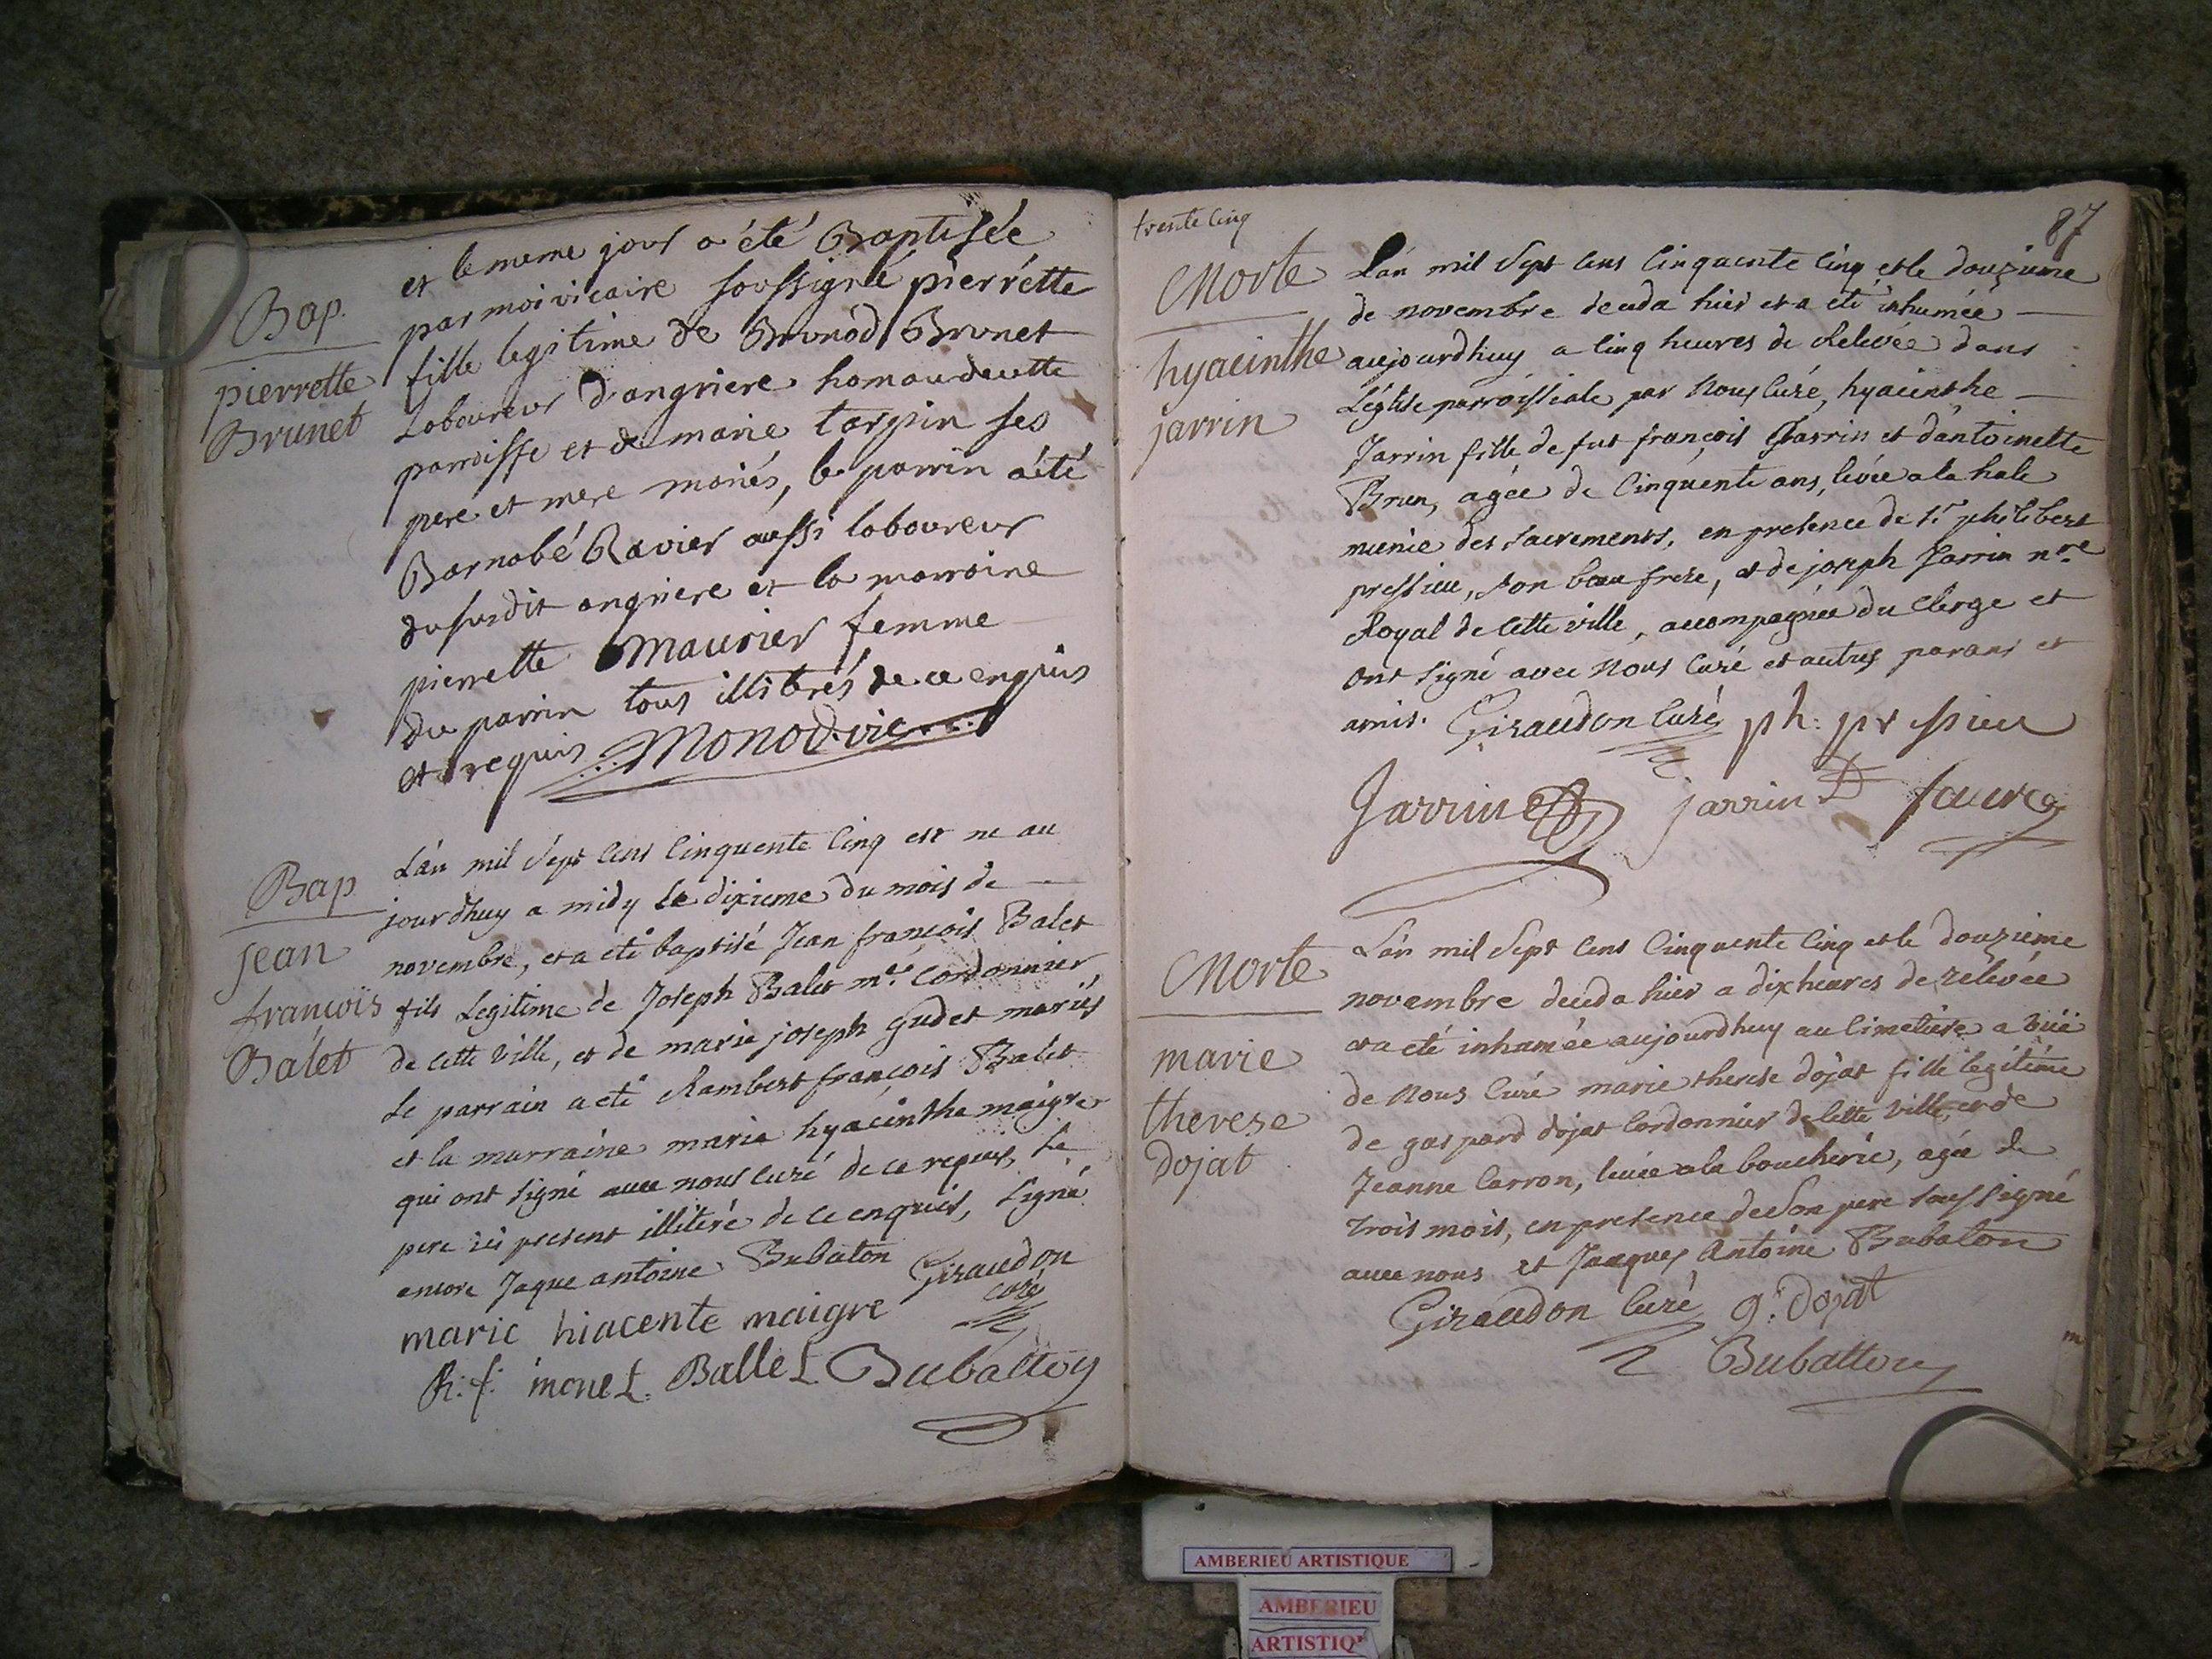 Bap.
pierrette
Brunet
et le meme jour a été Baptisée
par moi vicaire soussigné pierrétte
fille legitime de Brunod Brunet
Laboureur d'angriere
paroisse et de marie targin ses
pere et mere mariés, le parrin a été
Barnabé Ravier aussi laboureur
dususdit angriere et la marraine
pierrette Maurier femme
du parrin tous illitérés de ce enquis
et requis Monod vic.
Bap
jean
françois
Balet
L'an mil sept cens cinquente cinq est ne au
jourdhuy a midy le dixieme du mois de
novembre, et a eté baptisé Jean françois Balet
fils Legitime de Joseph Balet me. Cordonnier
de cette ville, et de marie joseph gudet mariés
Le parrain a eté Rambert françois Balet
et la marraine marie hyacinthe maigre
qui ont signé avec nous curé de ce requis, Le
pere ici present illiteré de ce enquis, signé
encore Jaque antoine Bubaton Giraudon
curé
marie hiacente maigre
R. f. monet. Ballet Bubatton
trente cinq
87
Morte
hyacinthe
jarrin
L'an mil sept cens cinquente cinq et le douzieme
de novembre deceda hier et a eté inhumée
aujourdhuy a cinq heures de Relevée dans
L'église parroissiale par Nous curé, hyacinthe
Jarrin fille de fut françois Jarrin et d'antoinette
Brun, agée de cinquente ans, levée a la hale
munie des sacrements, en presence de sr. philibert
pressieu, son beau frere, et de joseph Jarrin nre
Royal de cette ville, accompagnée du Clerge et
ont signé avec Nous Curé et autres parans et
amis. Giraudon Curé ph. pressieu
Jarrin jarrin faure
Morte
marie
therese
dojat
L'an mil sept cens cinquente cinq et le douzieme
novembre deceda hier a dix heures de relevée
et a eté inhumée aujourdhuy au cimetiere a
de Nous Curé marie therese dojat fille legitime
de gaspard dojat Cordonnier de cette ville, et de
Jeanne Carron, levée a la boucherie, agée de
trois mois, en presence de son pere soussigné
avec nous et Jaques Antoine Bubaton
Giraudon Curé g. dojat
Bubatton
AMBERIEU ARTISTIQUE
AMBERIEU
ARTISTIQ